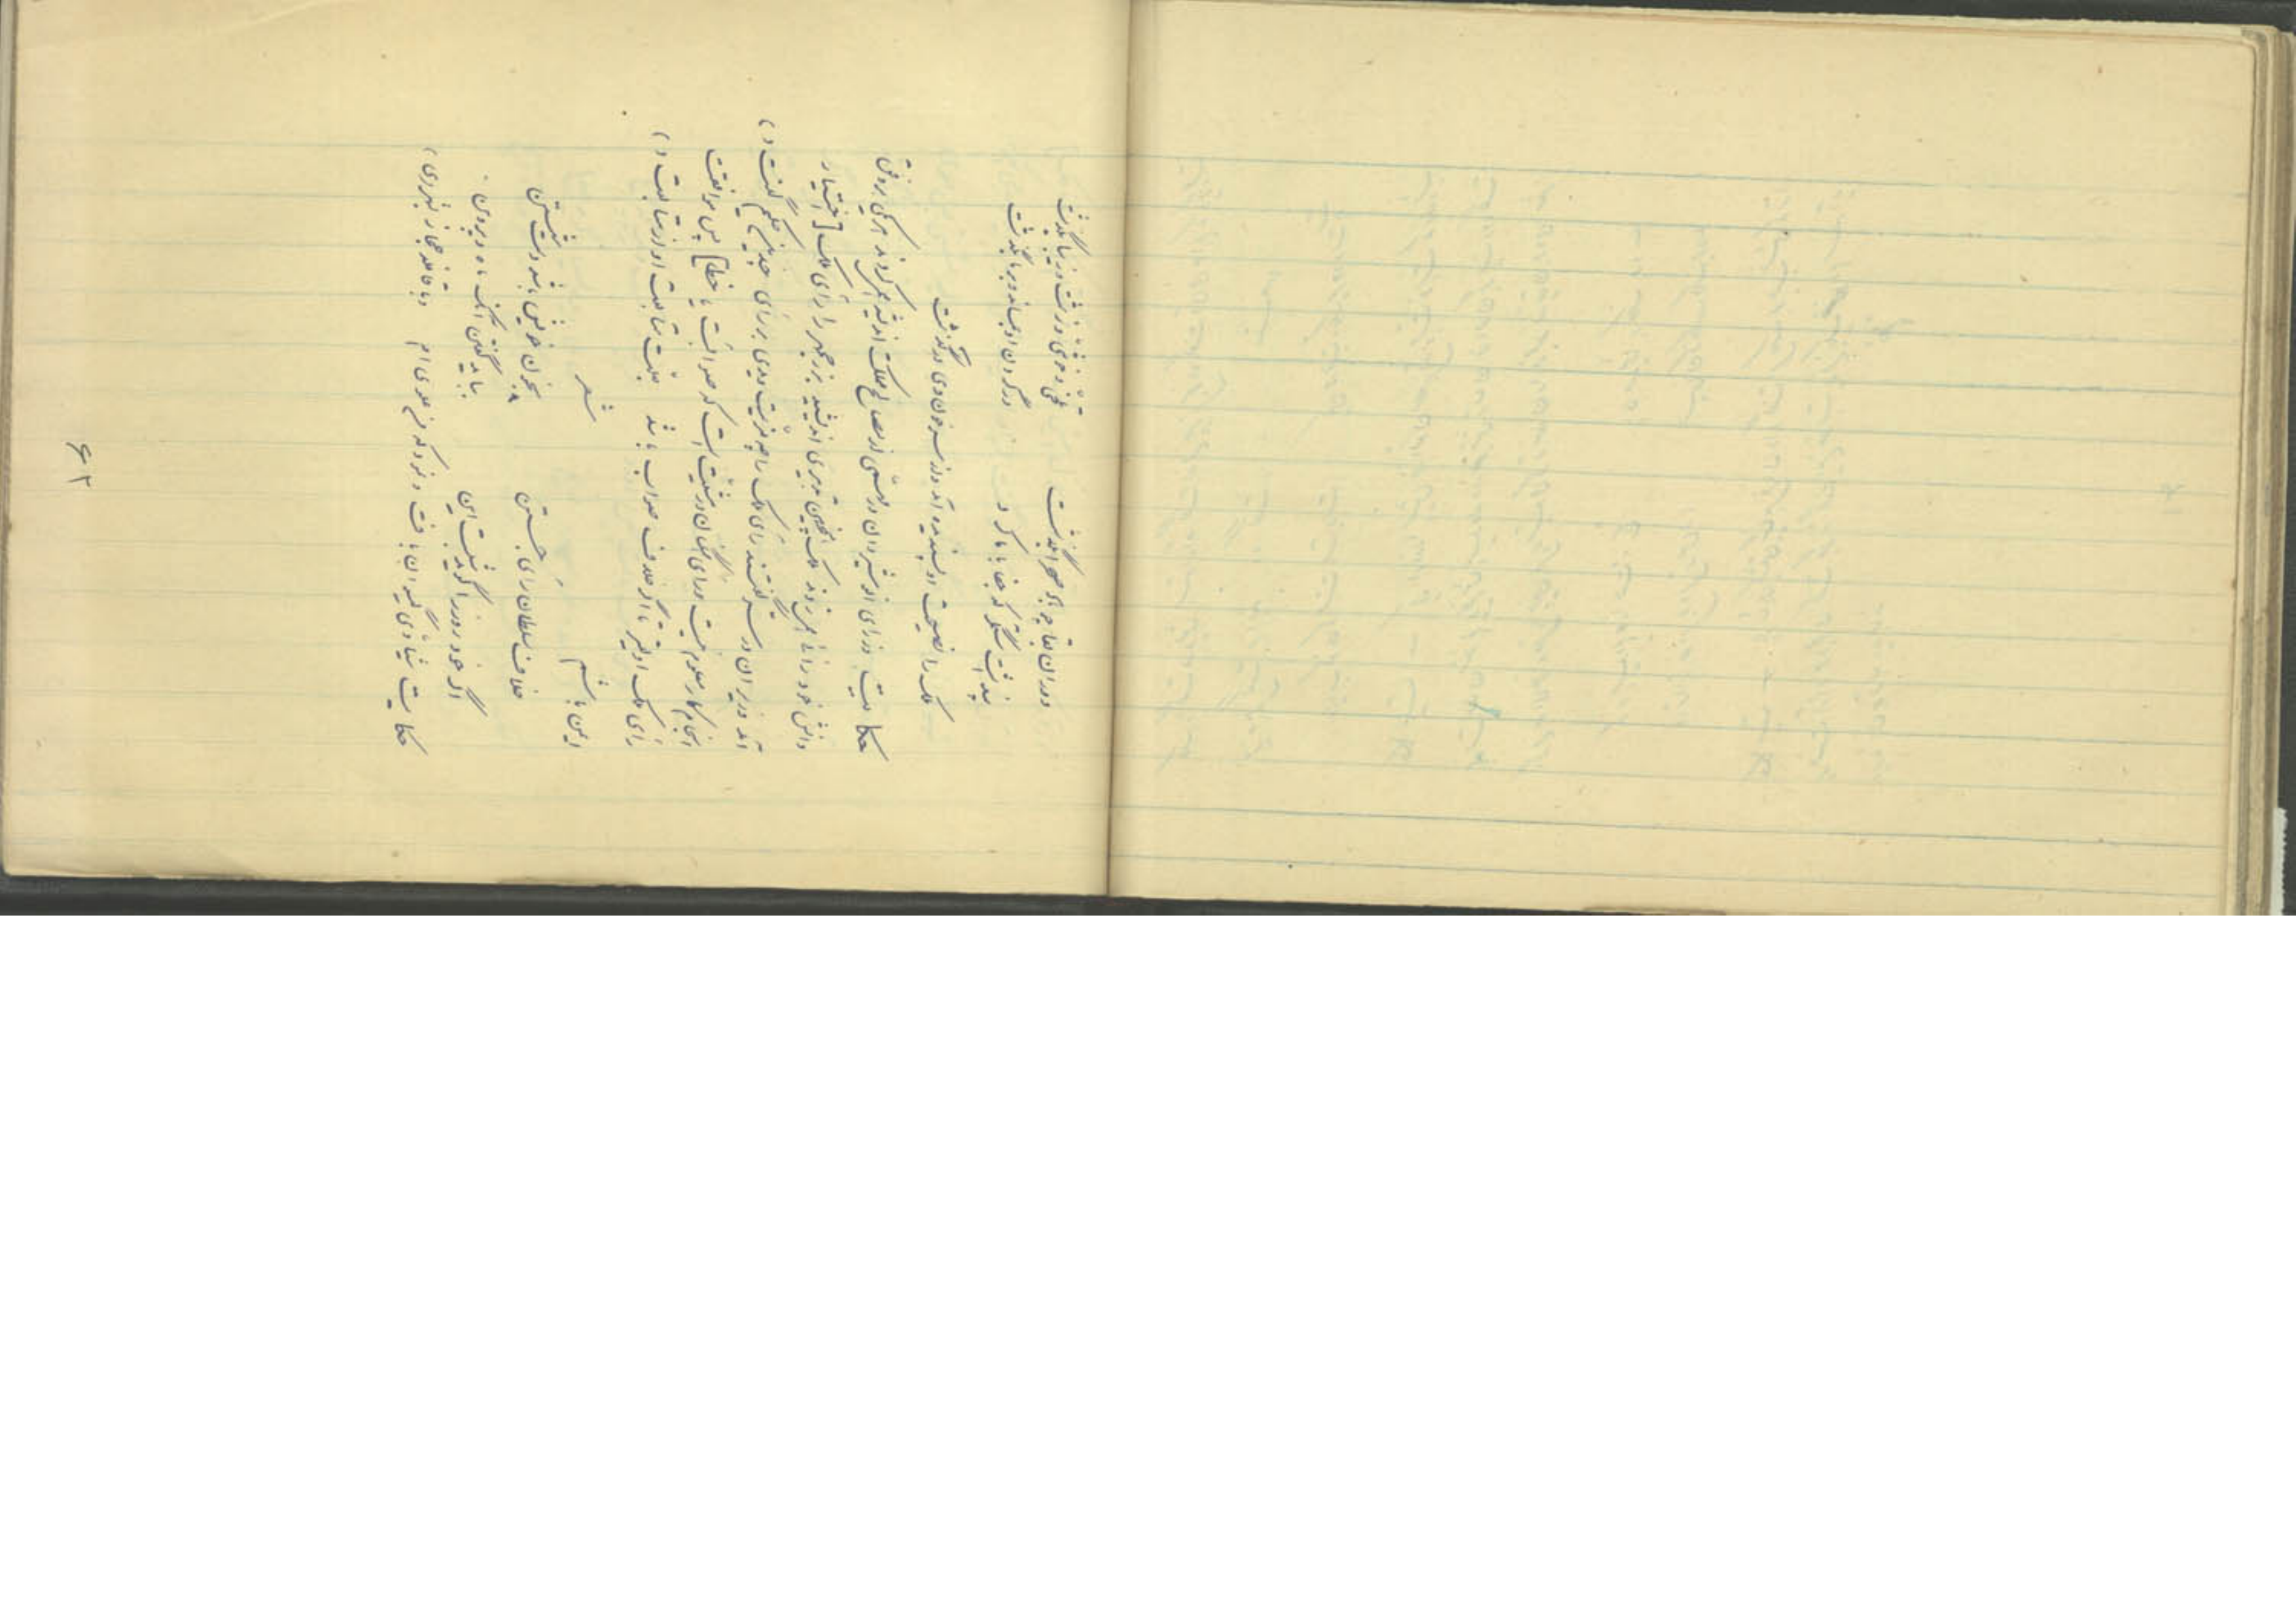 دوران بقا چو باد صحرا بگذشت تلخی و خوشی و زشت و زیبا بگذشت
پنداشت ستمگر که جفا با ما کرد در گردن او بماند و بر ما بگذشت
ملک را نصیحت او پسندیده آمد و از سر خون وی درگذشت
حکایت وزرای انوشیروان در مهمی از مصالح مملکت اندیشه همی کردند هر یکی بر وفق
دانش خود رائی همی زدند ملک همچنین تدبیری اندیشید بزرجمهر را رأی ملک اختیار
آمد وزیران در سر گفتند رأی ملک را چه مزیت دیدی بر رأی چندین حکیم گفت
انجام کار معلوم نیست و رأی همگان در مشیت است که صواب آید یا خطا پس موافقت
رأی ملک اولیتر تا اگر خلاف صواب باشد بعلت متابعت او از معاتبت
ایمن باشم شعر
خلاف سلطان رأی جستن بخون خویش باشد دست شستن
اگر خود روز را گوید شبست این بباید گفتن آنک ماه و پروین
حکایت شیادی گیسوان بافت و نمود که من علوی ام و با قافله حجاز بشهری
۶۲